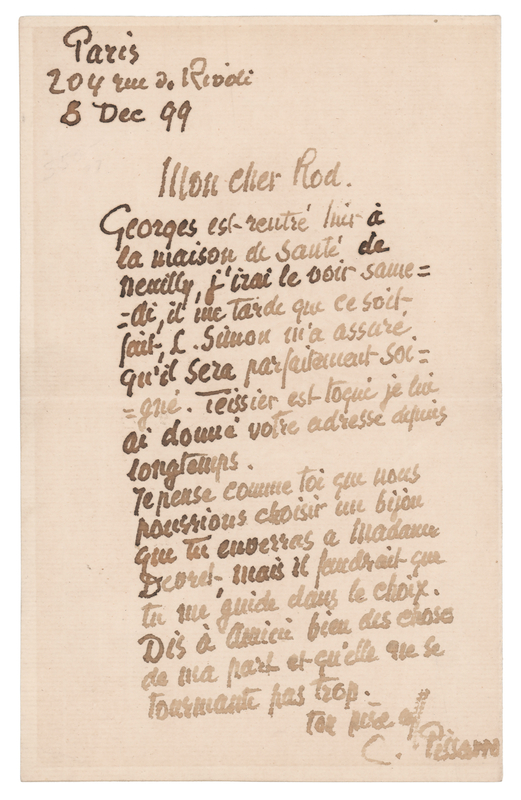 Paris
204 rue de Rivoli
8 Dec 99
Mon cher Rod.
Georges est rentré hier à
la maison de Santé de
Neuilly, j'irai le voir same=
=di, il me tarde que ce soit
fait, L. Simon m'a assuré
qu'il sera parfaitement soi=
=gné. Teissier est toqué je lui
ai donné votre adresse depuis
longtemps.
Je pense comme toi que nous
poussions choisir un bijou
que tu enverras a Madame
mais il faudrait que
tu me guide dans le choix.
Dis à bien des choses
de ma part et qu'elle ne se
tourmente pas trop.
ton père aff
C. Pissarro